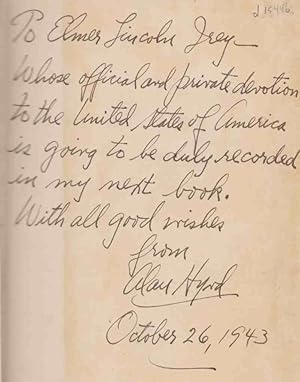 To Elmer Lincoln Irey
Whose official and private devotion
to the United States of America
is going to be duly recorded
in my next book.
With all good wishes
from
Alan Hynd
October 26, 1943